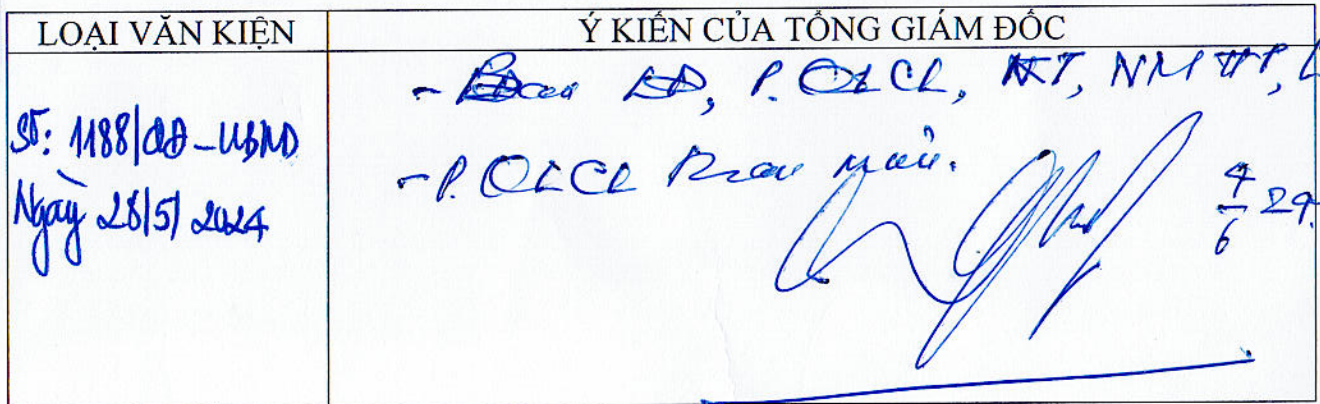 LOẠI VĂN KIỆN
Ý KIẾN CỦA TỔNG GIÁM ĐỐC
Số: 1188/QĐ-UBND
Ngày 28/5/2024
- Ban LĐ, P. QLCL, KT, NM
- P. QLCL
4/6 24.